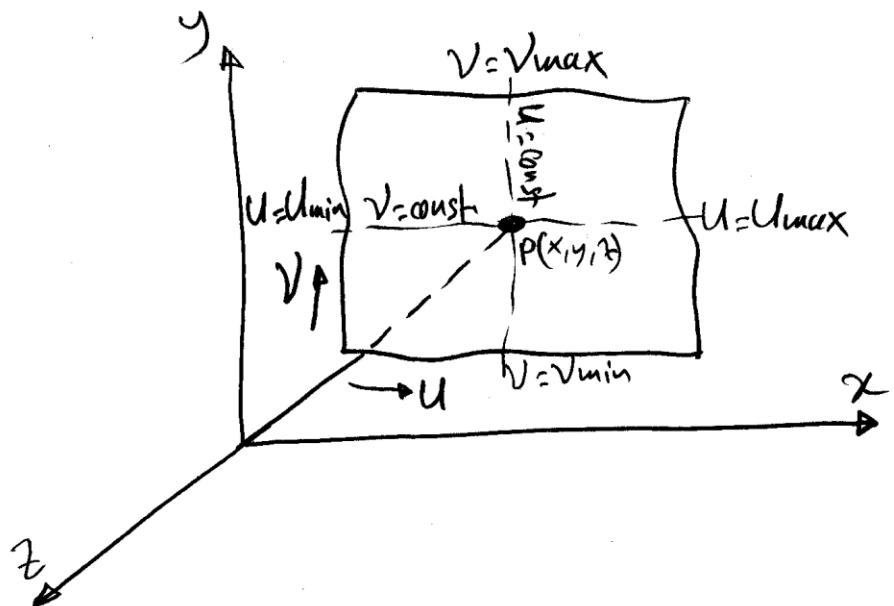 y
V=Vmax
U=const
U=Umin V=const U=Umax
P(x,y,z)
V
V=Vmin
U
x
z